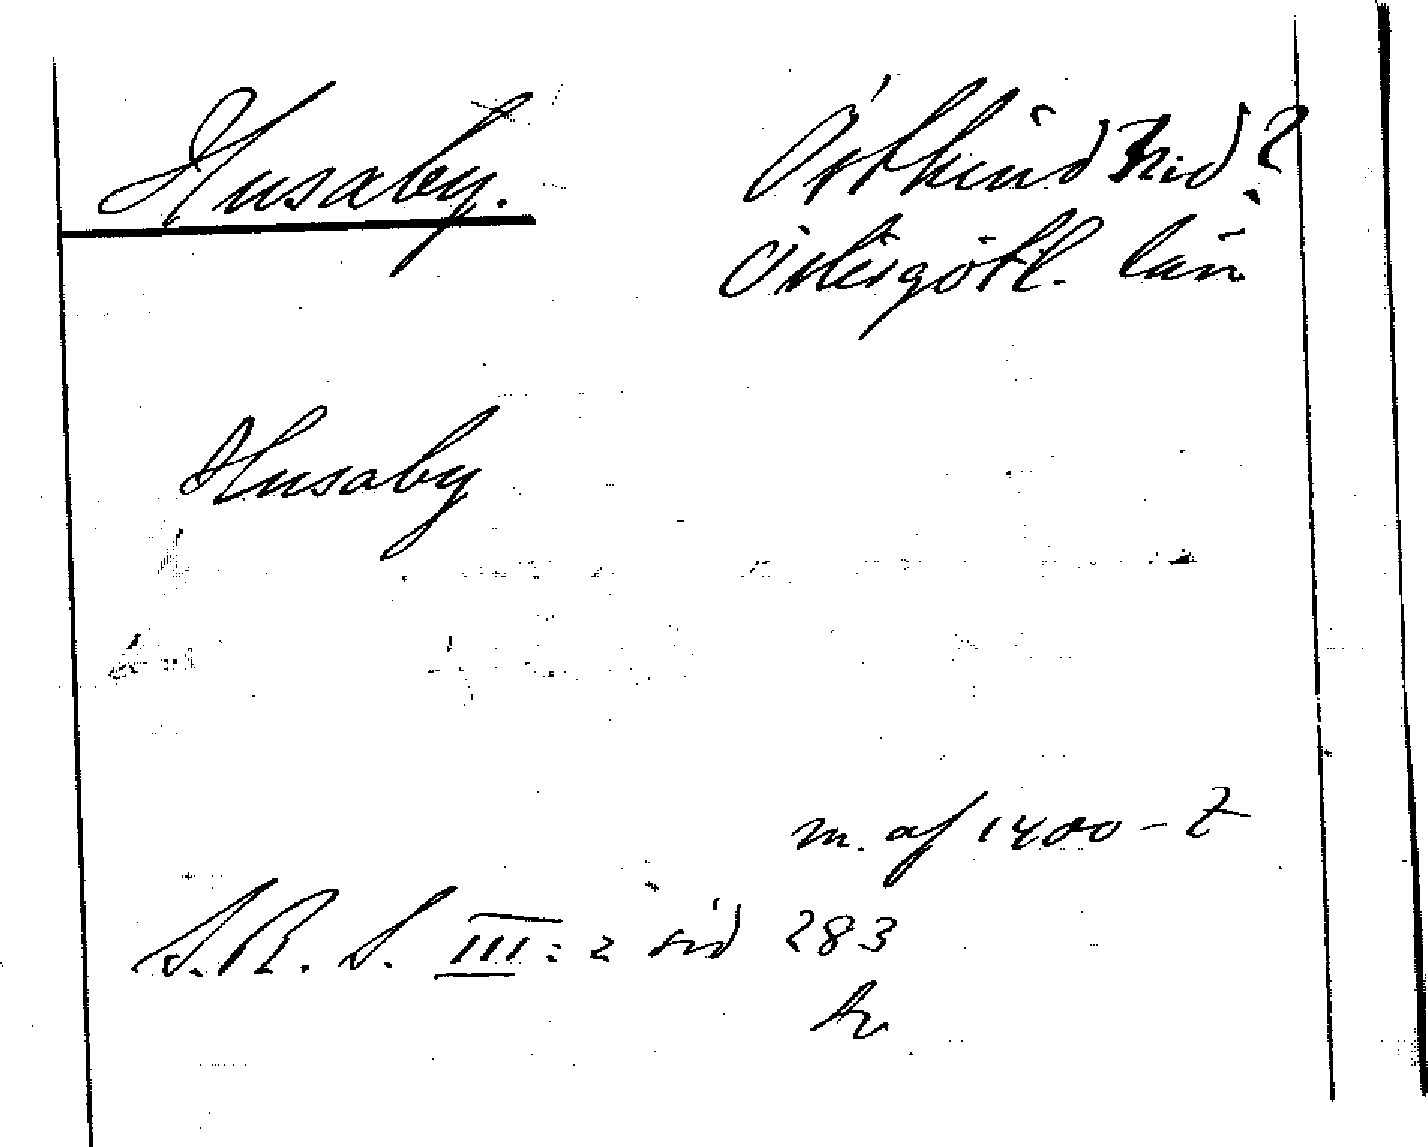 Husaby.
Östkind hd?
Östergötl. län
Husaby
m. af 1400-t
S.R.S. III:2 sid 283
tr.